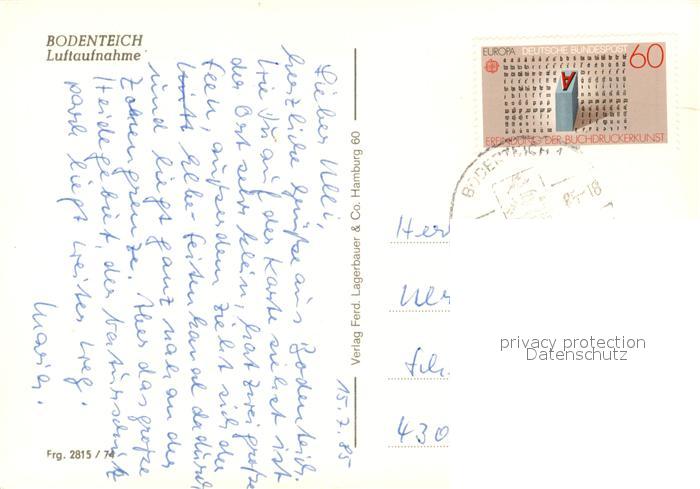 BODENTEICH
Luftaufnahme
Lieber Ulli,
herzliche Grüße aus Bodenteich.
Wie Du auf der Karte siehst ist
der Ort sehr klein, hat zwei große
Seen, außerdem zieht sich der
Elbe-Seitenkanal dadurch
und liegt ganz nah an der
Zonengrenze. Aber das große
Heidegebiet, der Naturschutz
park liegt weiter weg.
Maria.
15.7.85
Frg. 2815 / 74
Verlag Ferd. Lagerbauer & Co. Hamburg 60
EUROPA DEUTSCHE BUNDESPOST 60
A
ERFINDUNG DER BUCHDRUCKERKUNST
BODENTEICH 1
85-18
Her
430
privacy protection
Datenschutz